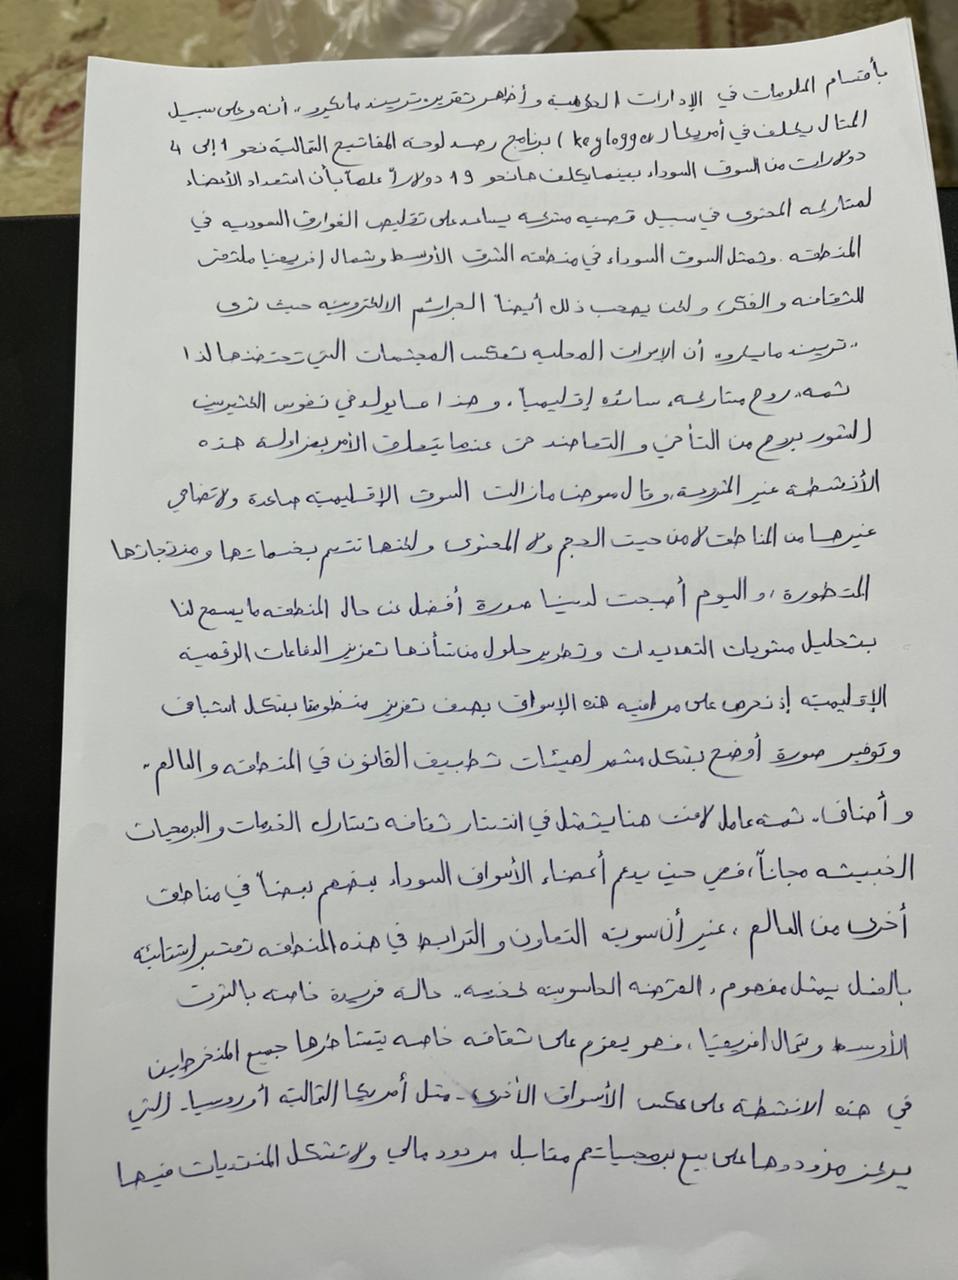 بأقسام المعلومات في الإدارات الحكومية وأظهر تقرير، تريند مايكرو،، أنه وعلى سبيل
المثال يكلف في أمريكا (keylogger) برنامج رصد لوحة المفاتيح الشمالية نحو 1 إلى 4
دولارات من السوق السوداء بينما يكلف ها نحو 19 دولاراً علماً بأن استعداد الأعضاء
لمشاركة المحتوى في سبيل قضية مشتركة يساعد على تقليص الفوارق السعرية في
المنطقة. وتمثل السوق السوداء في منطقة الشرق الأوسط وشمال إفريقيا ملتقى
للثقافة والفكر، ولكن يصحب ذلك أيضاً الجرائم الإلكترونية حيث ترى
،،تريند مايكرو،، أن الأسواق المحلية تعكس المجتمعات التي تحتضنها لذا
ثمة،، روح مشاركة، سائدة إقليمياً، وهذا ما يولد في نفوس الكثيرين
الشعور بروح من التآخي والتعاضد حتى عندما يتعلق الأمر بمزاولة هذه
الأنشطة غير المشروعة، وقال معوض مازالت السوق الإقليمية صاعدة ولا تضاهي
غيرها من المناطق لا من حيث الحجم ولا المحتوى ولكنها تتسم بخدماتها ومنتجاتها
المتطورة، واليوم أصبحت لدينا صورة أفضل عن حال المنطقة ما يسمح لنا
بتحليل مستويات التهديدات وتطوير حلول من شأنها تعزيز الدفاعات الرقمية
الإقليمية إذ نحرص على مراقبة هذه الأسواق بهدف تعزيز منظومتنا بشكل استباقي
وتوفير صورة أوضح بشكل مستمر لهيئات تطبيق القانون في المنطقة والعالم،،
وأضاف،، ثمة عامل لافت هنا يتمثل في انتشار ثقافة تشارك الخدمات والبرمجيات
الخبيثة مجاناً، ففي حين يدعم أعضاء الأسواق السوداء بعضهم بعضاً في مناطق
أخرى من العالم، غير أن سوية التعاون والترابط في هذه المنطقة تعتبر استثنائية
بالفعل يمثل مفهوم، القرصنة الحاسوبية كخدمة،، حالة فريدة خاصة بالشرق
الأوسط وشمال افريقيا، فهو يقوم على ثقافة خاصة يتشاطرها جميع المنخرطين
في هذه الأنشطة على عكس الأسواق الأخرى - مثل أمريكا الشمالية أو روسيا - التي
يركز مزودوها على بيع برمجياتهم مقابل مردود مالي ولا تشكل المنتديات فيها